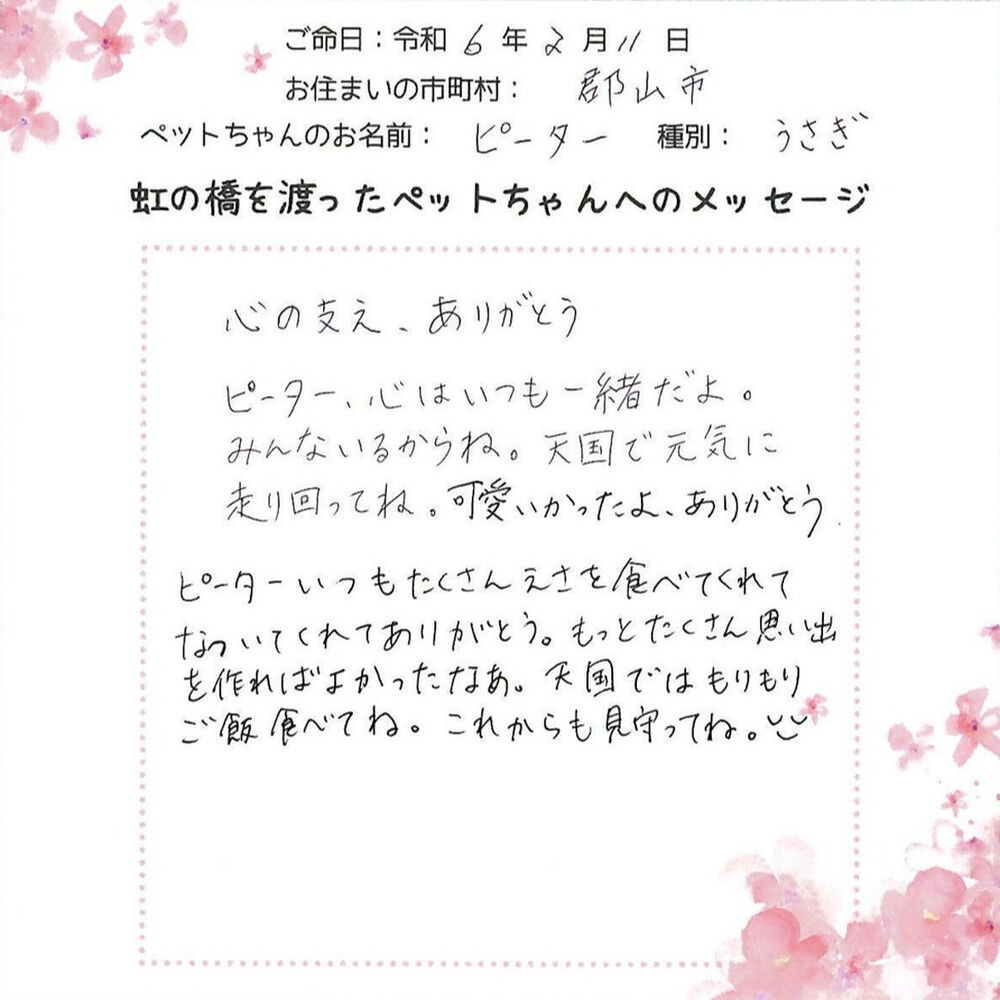 ご命日：令和 6 年 2 月 11 日
お住まいの市町村： 郡山市
ペットちゃんのお名前： ピーター 種別： うさぎ
虹の橋を渡ったペットちゃんへのメッセージ
心の支え、ありがとう
ピーター、心はいつも一緒だよ。
みんないるからね。天国で元気に
走り回ってね。可愛いかったよ、ありがとう
ピーターいつもたくさんえさを食べてくれて
なついてくれてありがとう。もっとたくさん思い出
を作ればよかったなあ。天国ではもりもり
ご飯食べてね。これからも見守ってね。